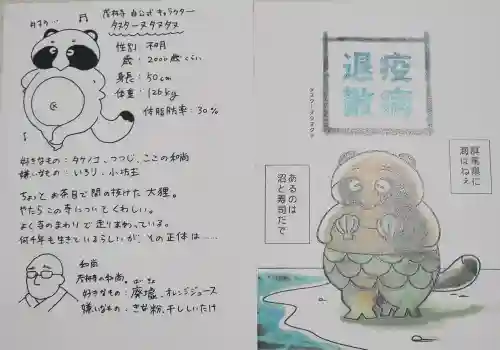 茂林寺 自公式キャラクター
タヌターヌタヌタヌ
性別 不明
歳：2000歳くらい
身長：50cm
体重：126kg
体脂肪率：30%
好きなもの：タケノコ、つつじ、ここの和尚
嫌いなもの：いろり、小坊主
ちょっとお茶目で間の抜けた大狸。
やたらこの寺についてくわしい。
よく寺のまわりで走りまわっている。
何千年も生きているらしいが、その正体は……
和尚
茂林寺の和尚。
好きなもの：廃墟、オレンジジュース
嫌いなもの：きな粉、干ししいたけ
疫病
退散
タヌターヌタヌタヌ
群馬県に
海はねぇ
あるのは
沼と寿司だで